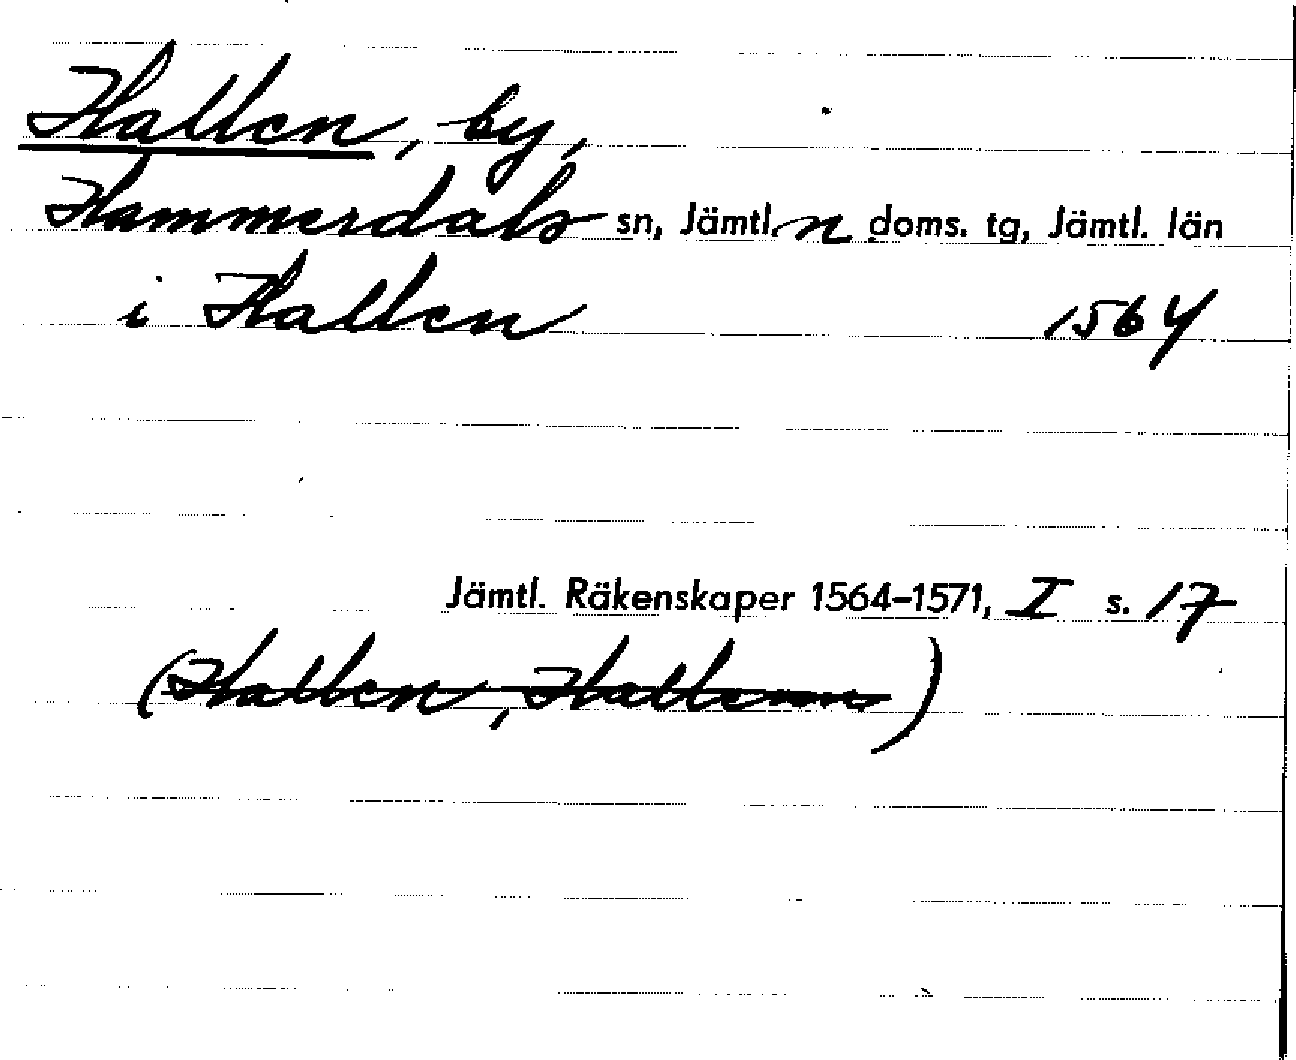 Hallen, by,
Hammerdals sn, Jämtl. n doms. tg, Jämtl. län
i Hallen 1564
Jämtl. Räkenskaper 1564–1571, I s. 17
(Hallen, )